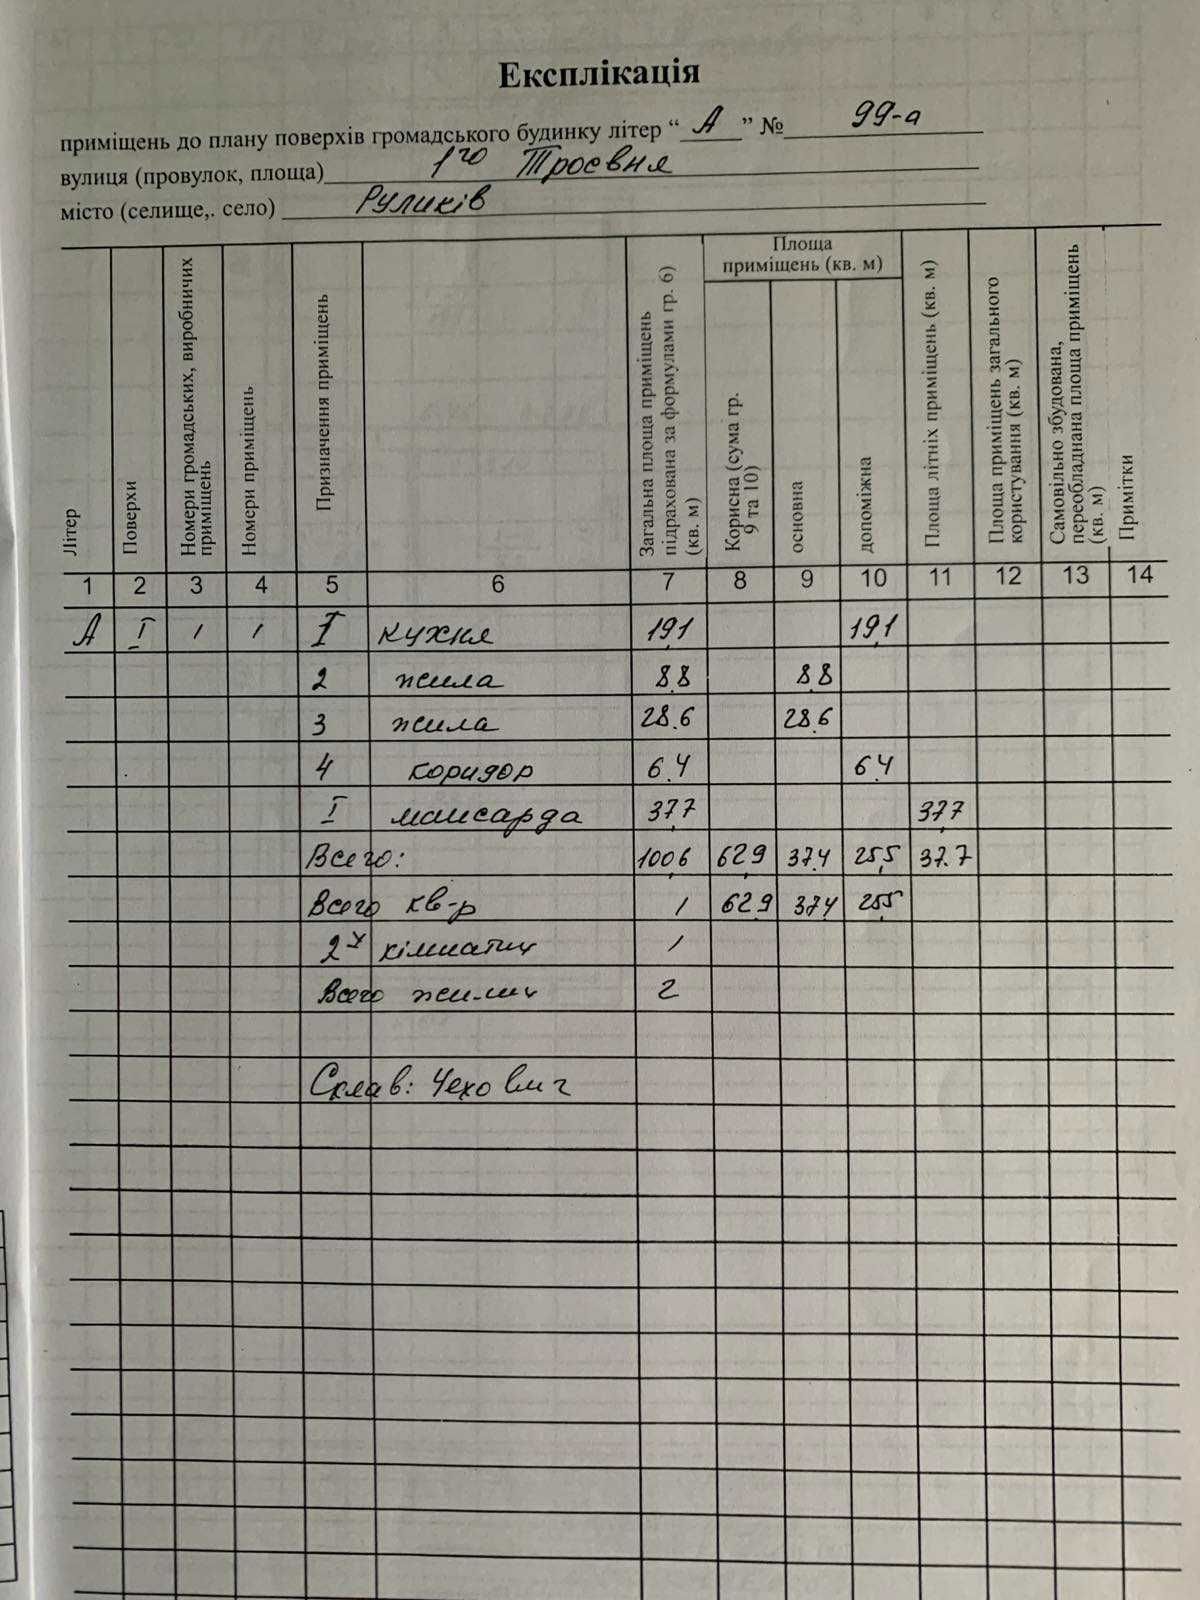 Експлікація
приміщень до плану поверхів громадського будинку літер “ А ” № 99-а
вулиця (провулок, площа) 1го Троєвня
місто (селище,. село) Руликів
Літер
Поверхи
Номери громадських, виробничих приміщень
Номери приміщень
Призначення приміщень
Загальна площа приміщень підрахована за формулами гр. 6) (кв. м)
Площа приміщень (кв. м)
Корисна (сума гр. 9 та 10)
основна
допоміжна
Площа літніх приміщень (кв. м)
Площа приміщень загального користування (кв. м)
Самовільно збудована, переобладнана площа приміщень (кв. м)
Примітки
1 2 3 4 5 6 7 8 9 10 11 12 13 14
А I 1 1 I кухня 19,1 19,1
2 жила 8.8 8.8
3 жила 28.6 28.6
4 коридор 6.4 6.4
I мансарда 37,7 37,7
Всего: 100,6 62,9 37.4 25,5 37.7
Всего кв-р 1 62,9 37,4 25,5
2х кімнатних 1
Всего жилих 2
Склав: Чехович